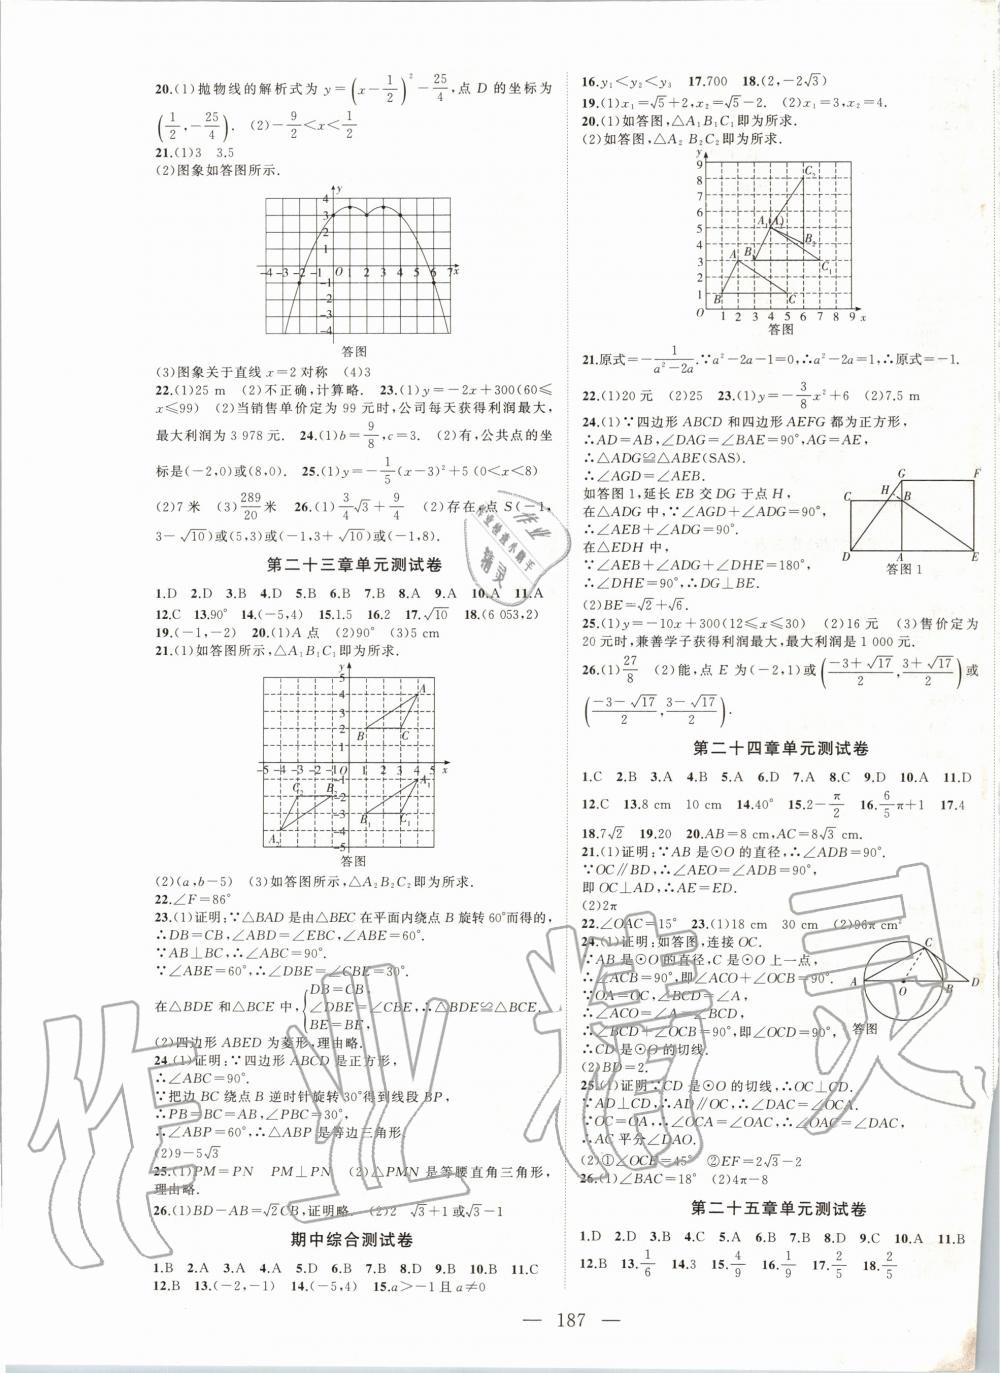 20.(1)抛物线的解析式为 y=(x-1/2)²-25/4,点 D 的坐标为
(1/2,-25/4). (2)-9/2<x<1/2
21.(1)3 3.5
(2)图象如答图所示.
答图
(3)图象关于直线 x=2 对称 (4)3
22.(1)25 m (2)不正确,计算略. 23.(1)y=-2x+300(60≤
x≤99) (2)当销售单价定为 99 元时,公司每天获得利润最大,
最大利润为 3 978 元. 24.(1)b=9/8,c=3. (2)有,公共点的坐
标是(-2,0)或(8,0). 25.(1)y=-1/5(x-3)²+5(0<x<8)
(2)7米 (3)289/20米 26.(1)3/4√3+9/4 (2)存在,点 S(-1,
3-√10)或(5,3)或(-1,3+√10)或(-1,8).
第二十三章单元测试卷
1.D 2.D 3.B 4.D 5.B 6.B 7.B 8.A 9.A 10.A 11.A
12.C 13.90° 14.(-5,4) 15.1.5 16.2 17.√10 18.(6 053,2)
19.(-1,-2) 20.(1)A 点 (2)90° (3)5 cm
21.(1)如答图所示,△A₁B₁C₁即为所求.
答图
(2)(a,b-5) (3)如答图所示,△A₂B₂C₂即为所求.
22.∠F=86°
23.(1)证明:∵△BAD是由△BEC在平面内绕点 B 旋转60°而得的,
∴DB=CB,∠ABD=∠EBC,∠ABE=60°.
∵AB⊥BC,∴∠ABC=90°.
∵∠ABE=60°,∴∠DBE=∠CBE=30°.
在△BDE 和△BCE 中,{DB=CB,
∠DBE=∠CBE,∴△BDE≌△BCE.
BE=BE,
(2)四边形 ABED 为菱形,理由略.
24.(1)证明:∵四边形 ABCD 是正方形,
∴∠ABC=90°.
∵把边 BC 绕点 B 逆时针旋转30°得到线段 BP,
∴PB=BC=AB,∠PBC=30°,
∴∠ABP=60°,∴△ABP 是等边三角形.
(2)9-5√3
25.(1)PM=PN PM⊥PN (2)△PMN 是等腰直角三角形,
理由略.
26.(1)BD-AB=√2CB,证明略. (2)2 √3+1或√3-1
期中综合测试卷
1.B 2.A 3.A 4.A 5.D 6.D 7.B 8.C 9.B 10.B 11.C
12.B 13.(-2,-1) 14.(-5,4) 15.a>-1且 a≠0
16.y₁<y₂<y₃ 17.700 18.(2,-2√3)
19.(1)x₁=√5+2,x₂=√5-2. (2)x₁=3,x₂=4.
20.(1)如答图,△A₁B₁C₁即为所求.
(2)如答图,△A₂B₂C₂即为所求.
答图
21.原式=-1/(a²-2a).∵a²-2a-1=0,∴a²-2a=1,∴原式=-1.
22.(1)20元 (2)25 23.(1)y=-3/8x²+6 (2)7.5 m
24.(1)∵四边形 ABCD 和四边形 AEFG 都为正方形,
∴AD=AB,∠DAG=∠BAE=90°,AG=AE,
∴△ADG≌△ABE(SAS).
∴∠AGD=∠AEB.
如答图1,延长 EB 交 DG 于点 H,
在△ADG 中,∵∠AGD+∠ADG=90°,
∴∠AEB+∠ADG=90°.
在△EDH 中,
∵∠AEB+∠ADG+∠DHE=180°,
∴∠DHE=90°,∴DG⊥BE.
答图1
(2)BE=√2+√6.
25.(1)y=-10x+300(12≤x≤30) (2)16元 (3)售价定为
20元时,兼善学子获得利润最大,最大利润是1 000元.
26.(1)27/8 (2)能,点 E 为(-2,1)或((-3+√17)/2,(3+√17)/2)或
((-3-√17)/2,(3-√17)/2).
第二十四章单元测试卷
1.C 2.B 3.A 4.B 5.A 6.D 7.A 8.C 9.D 10.A 11.D
12.C 13.8 cm 10 cm 14.40° 15.2-π/2 16.6/5π+1 17.4
18.7√2 19.20 20.AB=8 cm,AC=8√3 cm.
21.(1)证明:∵AB 是⊙O 的直径,∴∠ADB=90°.
∵OC∥BD,∴∠AEO=∠ADB=90°,
即 OC⊥AD,∴AE=ED.
(2)2π
22.∠OAC=15° 23.(1)18 cm 30 cm (2)96π cm²
24.(1)证明:如答图,连接 OC.
∵AB 是⊙O 的直径,C 是⊙O 上一点,
∴∠ACB=90°,即∠ACO+∠OCB=90°.
∵OA=OC,∠BCD=∠A,
∴∠ACO=∠A=∠BCD,
∴∠BCD+∠OCB=90°,即∠OCD=90°,
∴CD 是⊙O 的切线.
答图
(2)BD=2.
25.(1)证明:∵CD 是⊙O 的切线,∴OC⊥CD.
∵AD⊥CD,∴AD∥OC,∴∠DAC=∠OCA.
∵OC=OA,∴∠OCA=∠OAC,∴∠OAC=∠DAC,
∴AC 平分∠DAO.
(2)①∠OCE=45° ②EF=2√3-2
26.(1)∠BAC=18° (2)4π-8
第二十五章单元测试卷
1.D 2.D 3.B 4.C 5.A 6.B 7.B 8.D 9.C 10.A 11.B
12.B 13.1/6 14.3 15.4/9 16.1/9 17.2/5 18.2/5
— 187 —
作业精灵